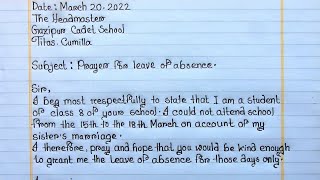 Date: March 20, 2022
The Headmaster
Gazipur Cadet School
Titas. Cumilla
Subject: Prayer for leave of absence.
Sir,
I beg most respectfully to state that I am a student
of class 8 of your school. I could not attend school
from the 15th to the 18th March on account of my
sister's marriage.
I therefore, pray and hope that you would be kind enough
to grant me the leave of absence for those days only.